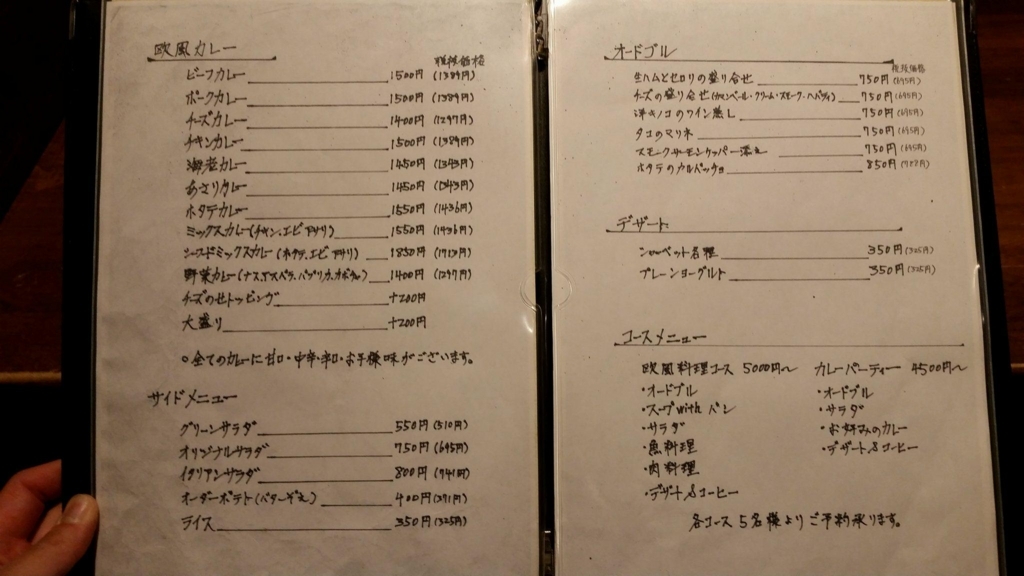 欧風カレー
税抜価格
ビーフカレー 1500円 (1389円)
ポークカレー 1500円 (1389円)
チーズカレー 1400円 (1297円)
チキンカレー 1500円 (1389円)
海老カレー 1450円 (1343円)
あさりカレー 1450円 (1343円)
ホタテカレー 1550円 (1436円)
ミックスカレー(チキン、エビ アサリ) 1550円 (1436円)
シーフードミックスカレー (ホタテ、エビ アサリ) 1850円 (1713円)
野菜カレー(ナス、アスパラ、パプリカ、カボチャ) 1400円 (1297円)
チーズのせトッピング +200円
大盛り +200円
○全てのカレーに甘口・中辛・辛口・お子様味がございます。
サイドメニュー
グリーンサラダ 550円 (510円)
オリジナルサラダ 750円 (695円)
イタリアンサラダ 800円 (741円)
オーダーポテト(バターぞえ) 400円 (371円)
ライス 350円 (325円)
オードブル
税抜価格
生ハムとセロリの盛り合せ 750円 (695円)
チーズの盛り合せ(カマンベール・クリーム・スモーク・ペパティ) 750円 (695円)
洋キノコのワイン蒸し 750円 (695円)
タコのマリネ 750円 (695円)
スモークサーモンケッパー添え 750円 (695円)
ホタテのカルパッチョ 850円 (788円)
デザート
シャーベット各種 350円 (325円)
プレーンヨーグルト 350円 (325円)
コースメニュー
欧風料理コース 5000円〜
・オードブル
・スープwithパン
・サラダ
・魚料理
・肉料理
・デザート&コーヒー
カレーパーティー 4500円〜
・オードブル
・サラダ
・お好みのカレー
・デザート&コーヒー
各コース5名様よりご予約承ります。